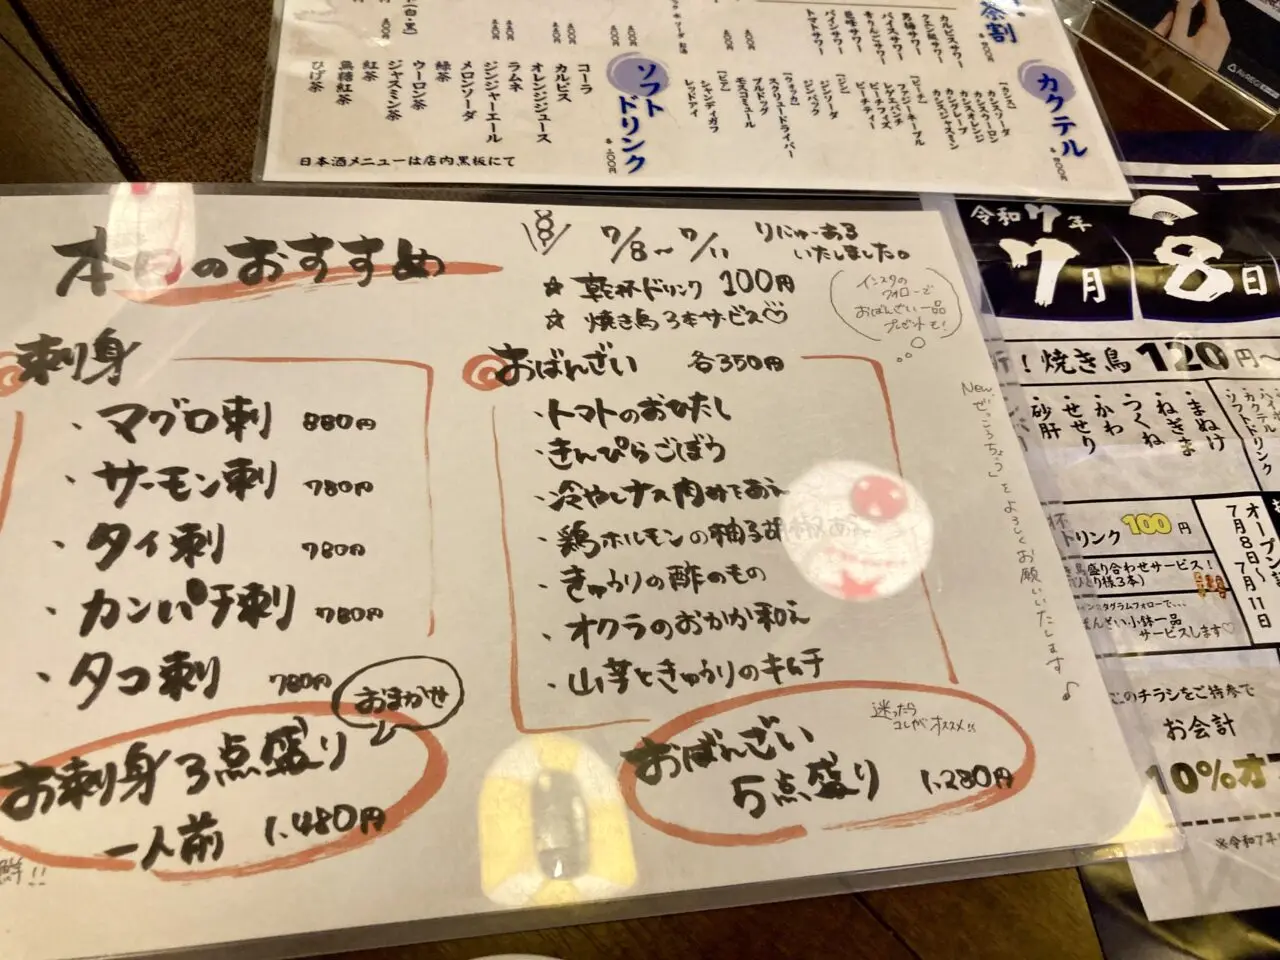 茶割
カクテル
各500円
カルピスサワー
クエン酸サワー
男梅サワー
バイスサワー
巨峰サワー
パインサワー
トマトサワー
「カシス」
カシスソーダ
カシスウーロン
カシスオレンジ
カシスグレープ
カシスジャスミン
「ピーチ」
ファジーネーブル
レゲエパンチ
ピーチフィズ
ピーチティー
「ジン」
ジンソーダ
ジンバック
「ウォッカ」
スクリュードライバー
ブルドッグ
モスコミュール
「ビア」
シャンディガフ
レッドアイ
ソフトドリンク
各400円
コーラ
カルピス
オレンジジュース
ラムネ
ジンジャーエール
メロンソーダ
緑茶
ウーロン茶
ジャスミン茶
紅茶
無糖紅茶
ひげ茶
日本酒メニューは店内黒板にて
本日のおすすめ
7/8〜7/11
りにゅーある
いたしました。
☆ 乾杯ドリンク 100円
☆ 焼き鳥3本サービス♡
インスタの
フォローで
おばんざい一品
プレゼントも!
刺身
・マグロ刺 880円
・サーモン刺 780円
・タイ刺 780円
・カンパチ刺 780円
・タコ刺 780円
おまかせ
お刺身3点盛り
一人前 1,480円
鮮!!
おばんざい 各350円
・トマトのおひたし
・きんぴらごぼう
・冷やしナス肉みそあえ
・鶏ホルモンの柚子胡椒あえ
・きゅうりの酢のもの
・オクラのおかか和え
・山芋ときゅうりのキムチ
迷ったら
コレがオススメ!!
おばんざい
5点盛り 1,280円
New「ぜっこうちょう」をよろしくお願いいたします♪
令和7年
7月8日
!焼き鳥120円〜
・まぬけ
・ねぎま
・つくね
・かわ
・せせり
・砂肝
カクテル
ソフトドリンク
杯
ドリンク 100円
鳥盛り合わせサービス!
(ひとり様3本)
インスタグラムフォローで…
ばんざい小鉢一品
サービスします♡
オープン
7月8日〜7月11日
このチラシをご持参で
お会計
10%オフ
※令和7年